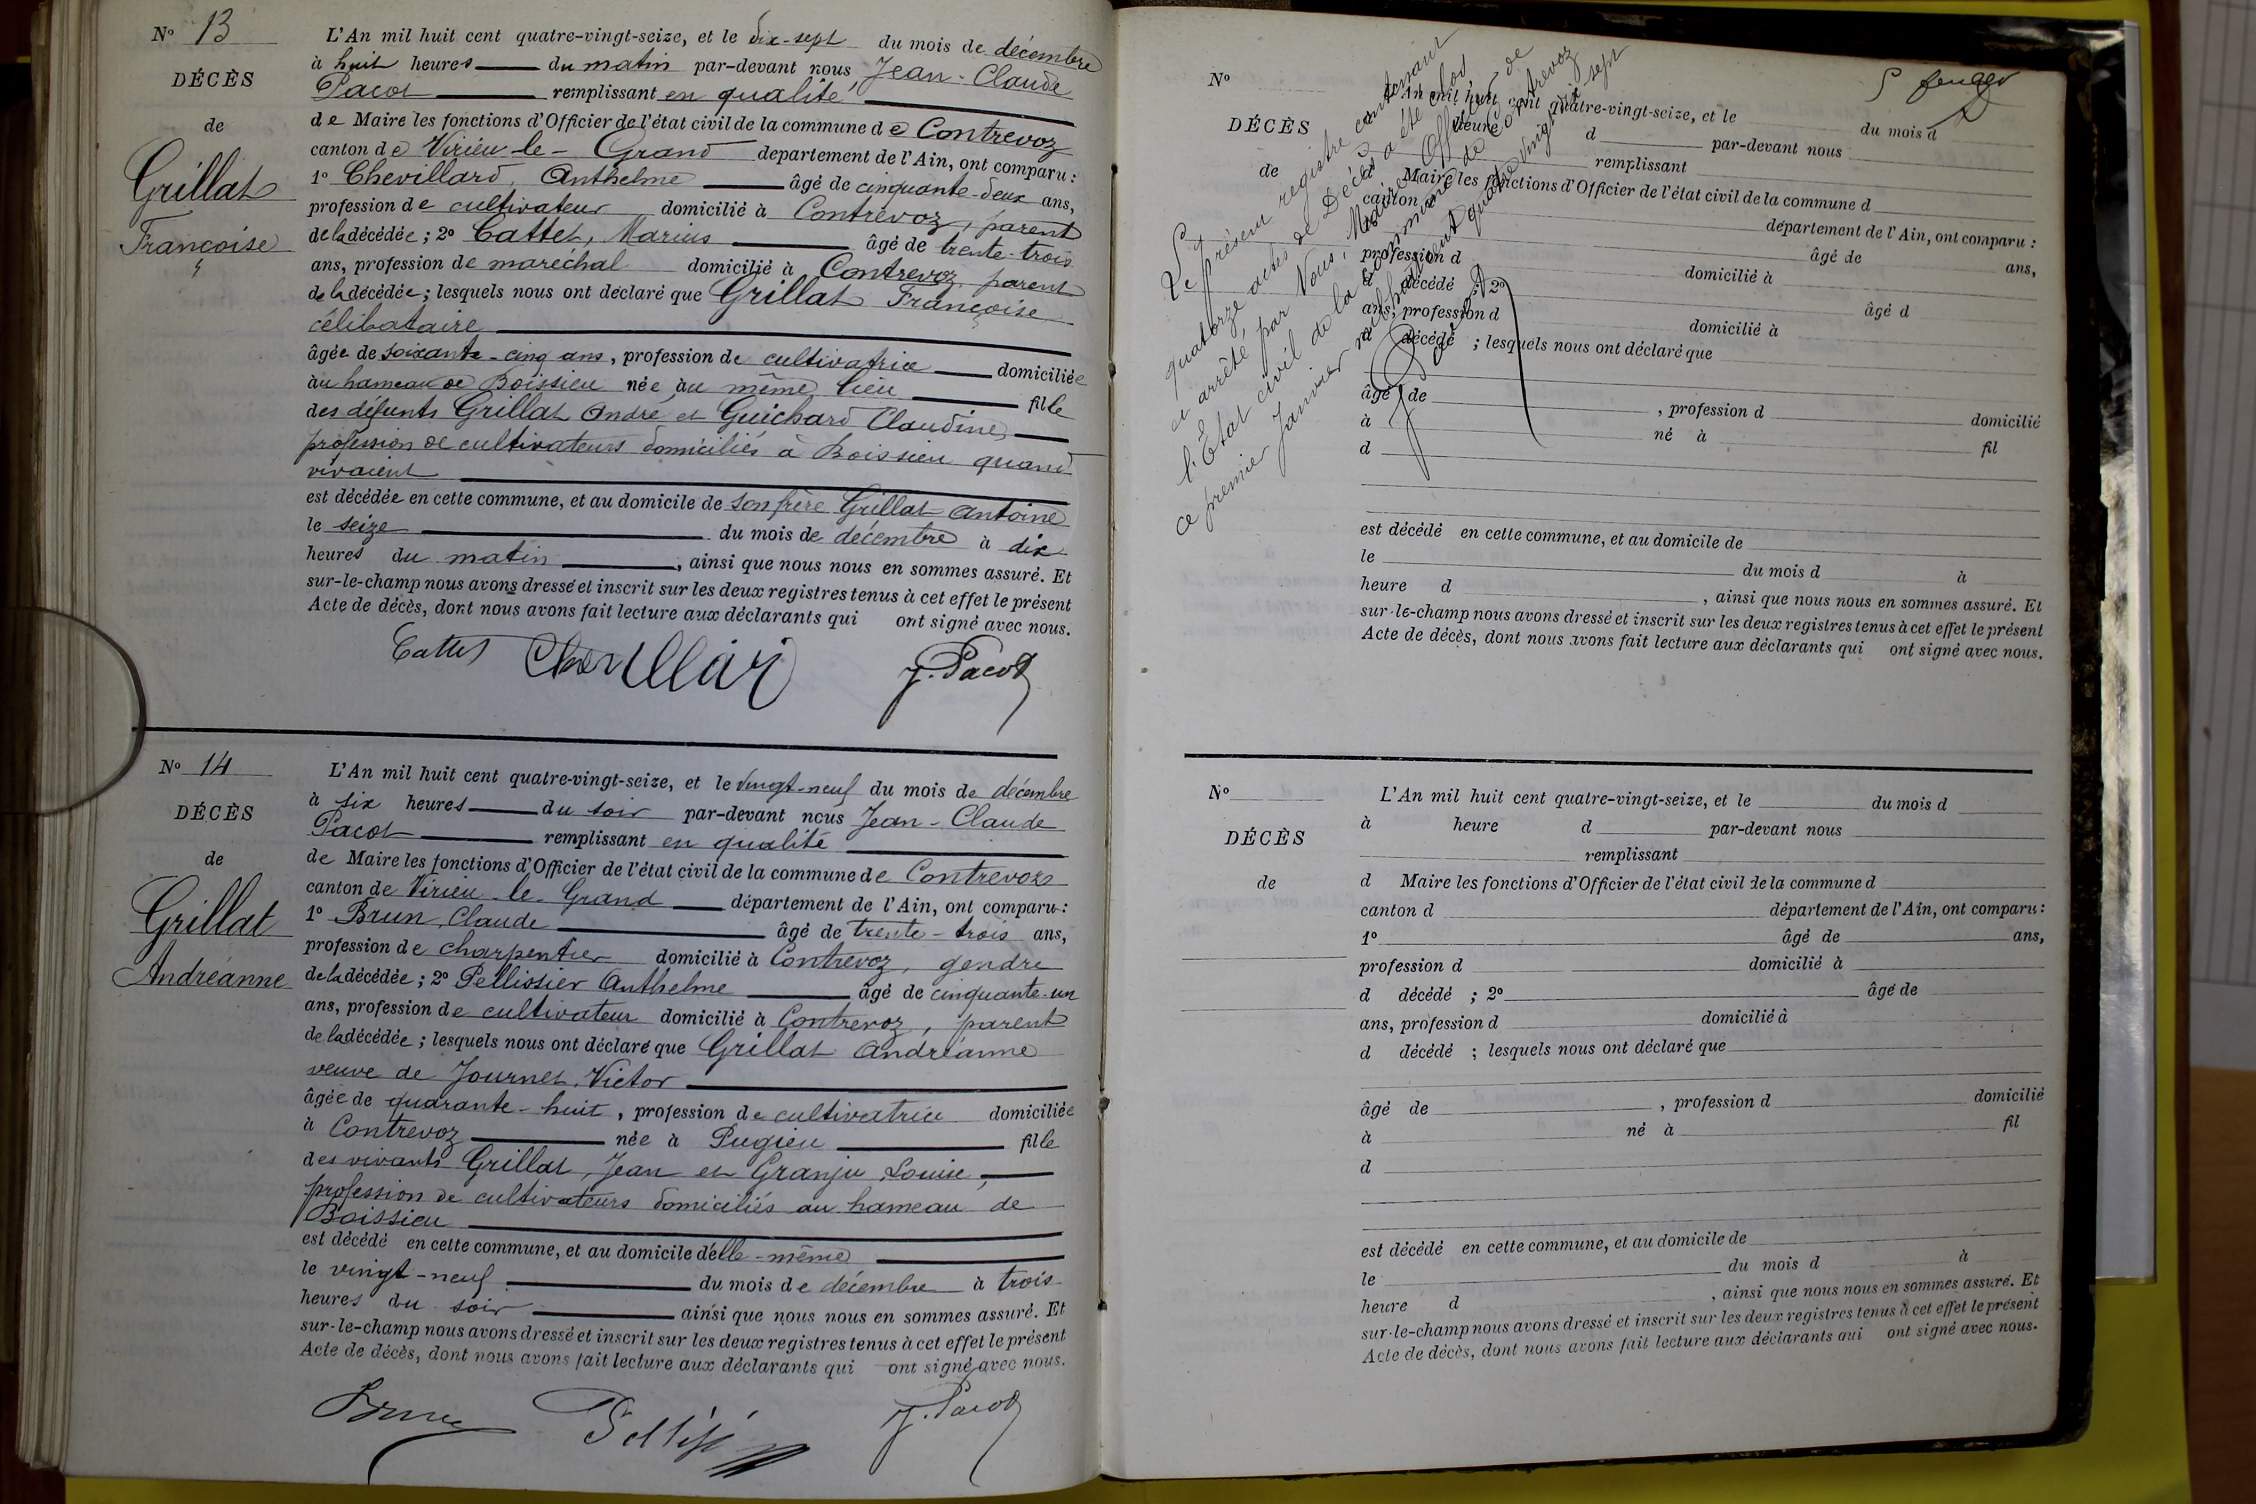 N° 13
DÉCÈS
de
Grillat
Françoise
L'An mil huit cent quatre-vingt-seize, et le dix-sept du mois de décembre
à huit heures du matin par-devant nous Jean-Claude
Pacot remplissant en qualité
de Maire les fonctions d'Officier de l'état civil de la commune de Contrevoz
canton de Virieu-le-Grand département de l'Ain, ont comparu :
1° Chevillard, Anthelme âgé de cinquante-deux ans,
profession de cultivateur domicilié à Contrevoz, parent
de la décédée ; 2° Cattet, Marius âgé de trente-trois
ans, profession de maréchal domicilié à Contrevoz, parent
de la décédée ; lesquels nous ont déclaré que Grillat Françoise
célibataire
âgée de soixante-cinq ans, profession de cultivatrice domiciliée
au hameau de Boissieu née au même lieu fille
des défunts Grillat André et Guichard Claudine
profession de cultivateurs domiciliés à Boissieu quand
vivaient
est décédée en cette commune, et au domicile de son frère Grillat Antoine
le seize du mois de décembre à dix
heures du matin, ainsi que nous nous en sommes assuré. Et
sur-le-champ nous avons dressé et inscrit sur les deux registres tenus à cet effet le présent
Acte de décès, dont nous avons fait lecture aux déclarants qui ont signé avec nous.
Cattet Chevillard J. Pacot
N° 14
DÉCÈS
de
Grillat
Andréanne
L'An mil huit cent quatre-vingt-seize, et le vingt-neuf du mois de décembre
à six heures du soir par-devant nous Jean-Claude
Pacot remplissant en qualité
de Maire les fonctions d'Officier de l'état civil de la commune de Contrevoz
canton de Virieu-le-Grand département de l'Ain, ont comparu :
1° Brun, Claude âgé de trente-trois ans,
profession de charpentier domicilié à Contrevoz, gendre
de la décédée ; 2° Pellissier Anthelme âgé de cinquante-un
ans, profession de cultivateur domicilié à Contrevoz, parent
de la décédée ; lesquels nous ont déclaré que Grillat Andréanne
veuve de Journet, Victor
âgée de quarante-huit, profession de cultivatrice domiciliée
à Contrevoz née à Pugieu fille
des vivants Grillat, Jean et Granju Louise,
profession de cultivateurs domiciliés au hameau de
Boissieu
est décédé en cette commune, et au domicile d'elle-même
le vingt-neuf du mois de décembre à trois
heures du soir ainsi que nous nous en sommes assuré. Et
sur-le-champ nous avons dressé et inscrit sur les deux registres tenus à cet effet le présent
Acte de décès, dont nous avons fait lecture aux déclarants qui ont signé avec nous.
Brun Pellissier J. Pacot
Le présent registre contenant
quatorze actes de Décès a été clos
et arrêté par Nous, Maire Officier de
l'État civil de la commune de Contrevoz
ce premier Janvier mil huit cent quatre vingt dix sept
J. Pacot
N°
DÉCÈS
de
L'An mil huit cent quatre-vingt-seize, et le du mois d
heure d par-devant nous
remplissant
Maire les fonctions d'Officier de l'état civil de la commune d
canton d département de l'Ain, ont comparu :
âgé de ans,
profession d domicilié à
d décédé ; 2° âgé d
ans, profession d domicilié à
d décédé ; lesquels nous ont déclaré que
âgé de , profession d domicilié
à né à fil
d
est décédé en cette commune, et au domicile de
le du mois d à
heure d , ainsi que nous nous en sommes assuré. Et
sur-le-champ nous avons dressé et inscrit sur les deux registres tenus à cet effet le présent
Acte de décès, dont nous avons fait lecture aux déclarants qui ont signé avec nous.
N°
DÉCÈS
de
L'An mil huit cent quatre-vingt-seize, et le du mois d
à heure d par-devant nous
remplissant
d Maire les fonctions d'Officier de l'état civil de la commune d
canton d département de l'Ain, ont comparu :
1° âgé de ans,
profession d domicilié à
d décédé ; 2° âgé de
ans, profession d domicilié à
d décédé ; lesquels nous ont déclaré que
âgé de , profession d domicilié
à né à fil
d
est décédé en cette commune, et au domicile de
le du mois d à
heure d , ainsi que nous nous en sommes assuré. Et
sur-le-champ nous avons dressé et inscrit sur les deux registres tenus à cet effet le présent
Acte de décès, dont nous avons fait lecture aux déclarants qui ont signé avec nous.